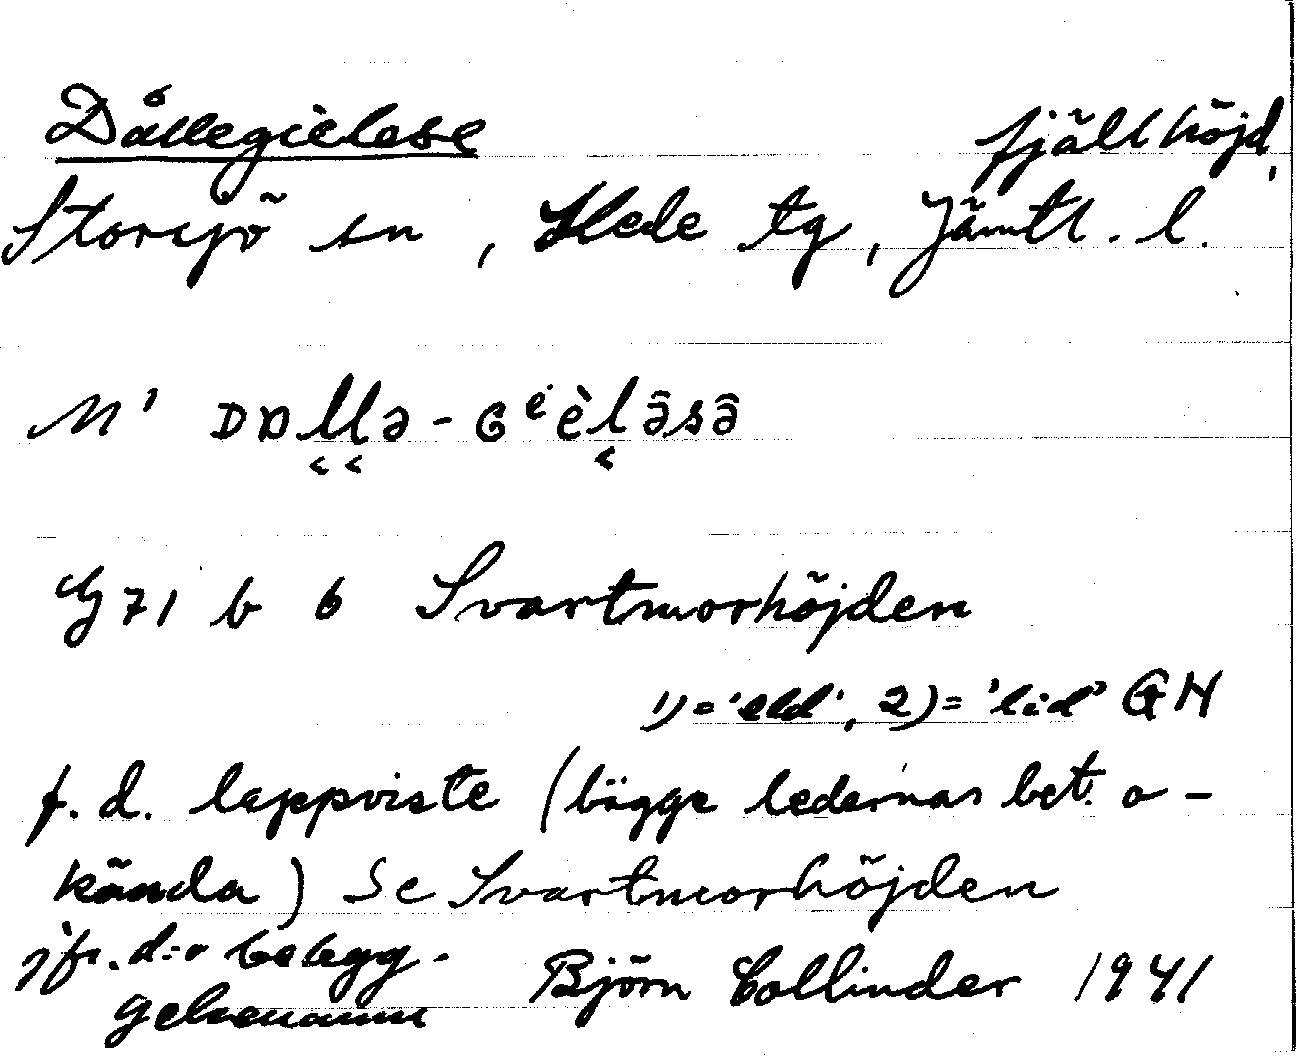 Dållegielese fjällhöjd,
Storsjö sn, Hede tg, Jämtl. l.
M' DɒllƏ-Gⁱèlə̂sə̂
G 71 b 6 Svartmorhöjden
1) = 'eld', 2) = 'lid' GH
f. d. lappviste (bägge ledernas bet. o-
kända) Se Svartmorhöjden
jfr. d:o belegg.
Björn Collinder 1941